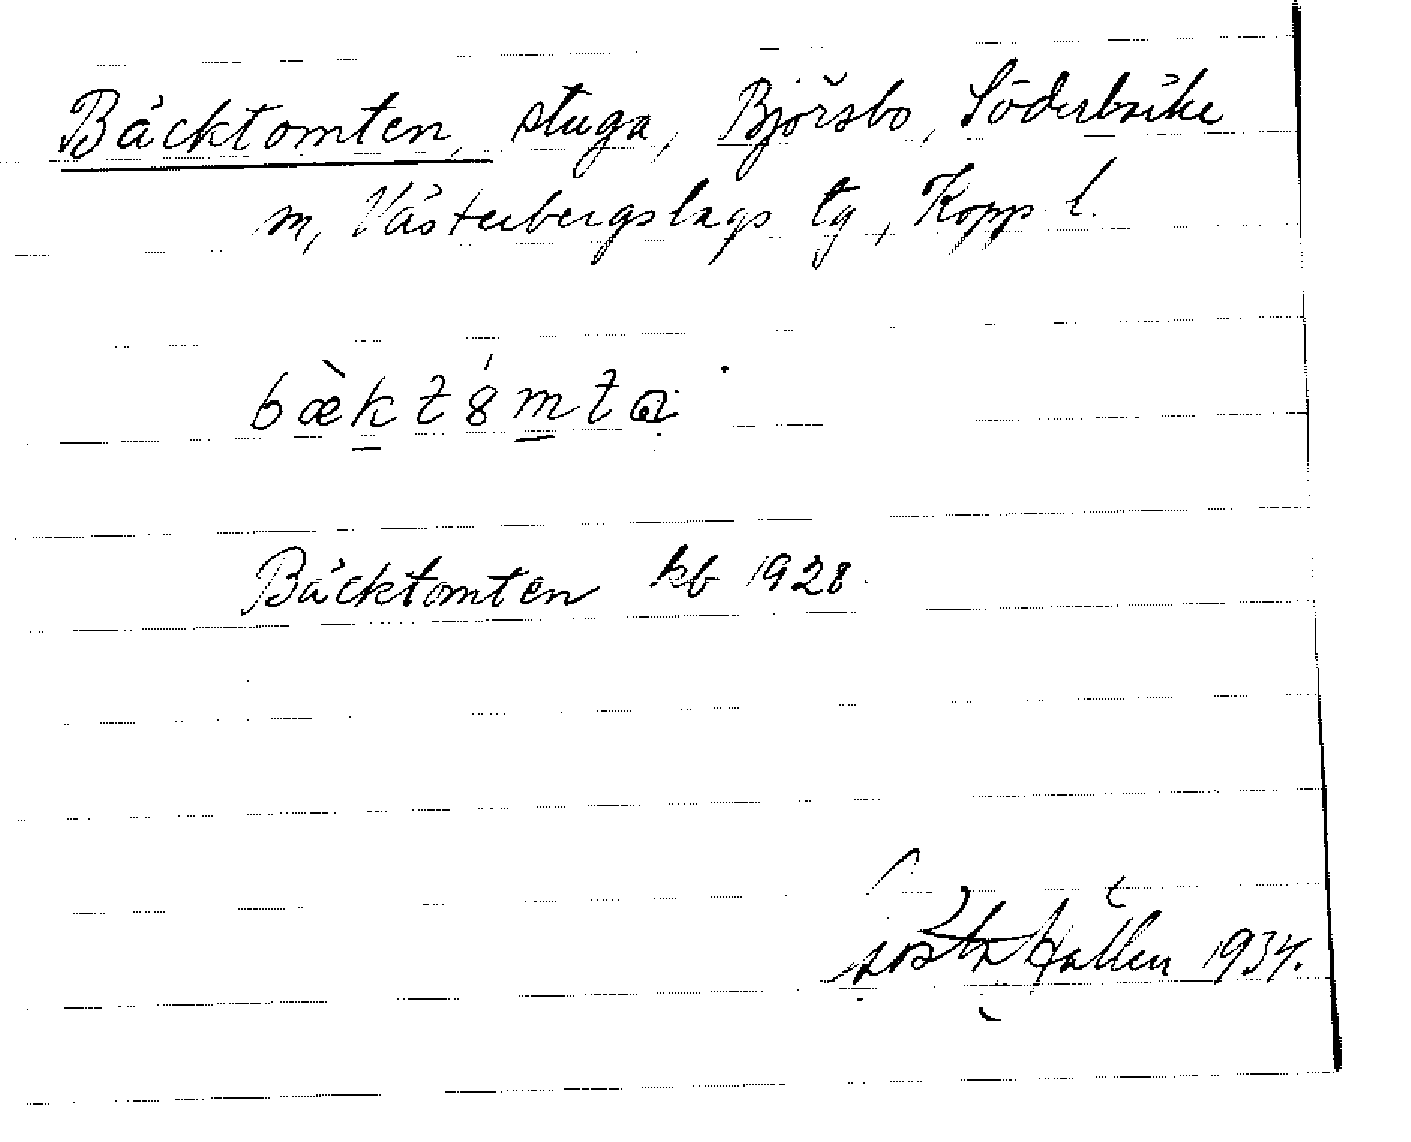 Bäcktomten, stuga, Björsbo, Söderbärke
sn, Västerbergslags tg, Kopp. l.
bæ̀kt8́mta
Bäcktomten kb 1928.
Gösta Hallén 1934.